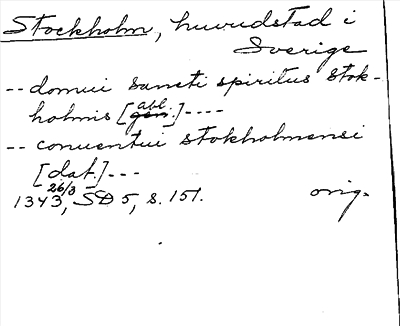 Stockholm, huvudstad i
Sverige
-- domui sancti spiritus Stok-
holmis [gen. abl.] ----
-- conuentui stokholmensi
[dat.] ---
1343 26/3, SD 5, s. 151. orig.